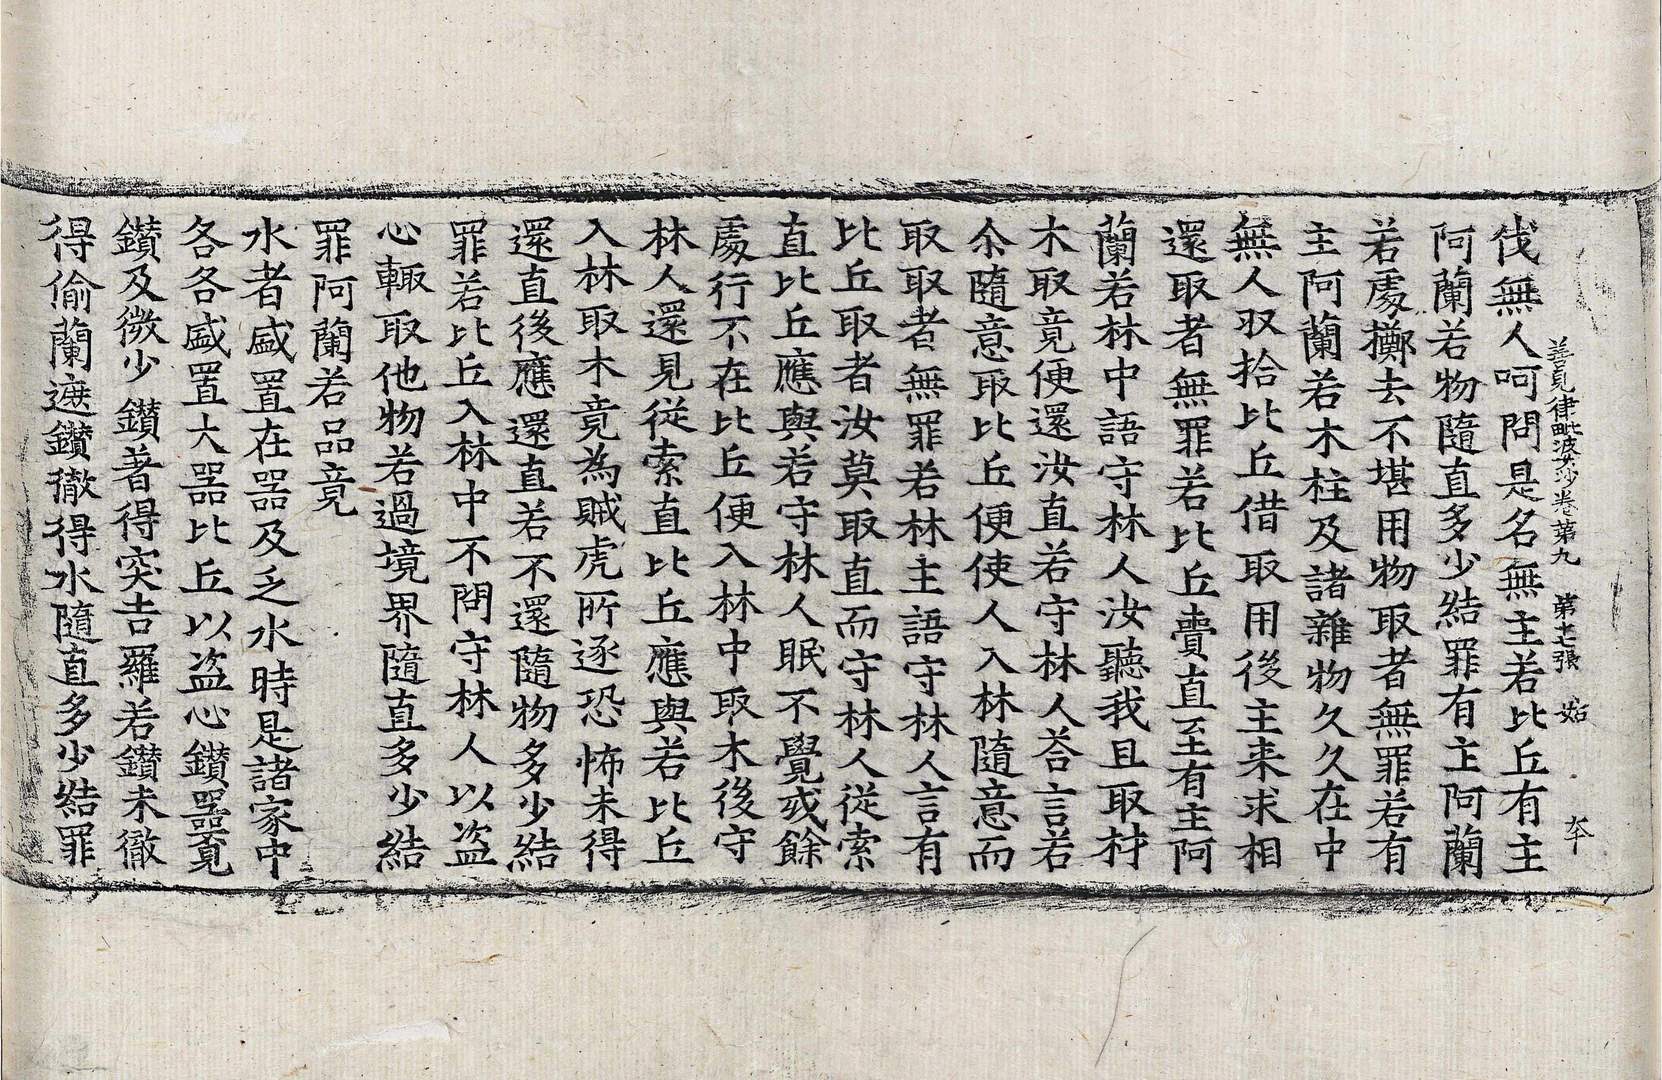 善見律毗婆沙卷第九　第七張　姑
夲
伐無人呵問是名無主若比丘有主
阿蘭若物隨直多少結罪有主阿蘭
若處擲去不堪用物取者無罪若有
主阿蘭若木柱及諸雜物久久在中
無人収拾比丘借取用後主来求相
還取者無罪若比丘賣直至有主阿
蘭若林中語守林人汝聽我且取材
木取竟便還汝直若守林人荅言若
尒隨意取比丘便使人入林隨意而
取取者無罪若林主語守林人言有
比丘取者汝莫取直而守林人從索
直比丘應與若守林人眠不覺或餘
處行不在比丘便入林中取木後守
林人還見從索直比丘應與若比丘
入林取木竟為賊虎所逐恐怖未得
還直後應還直若不還隨物多少結
罪若比丘入林中不問守林人以盗
心輙取他物若過境界隨直多少結
罪阿蘭若品竟
水者盛置在器及乏水時是諸家中
各各盛置大器比丘以盗心鑚器覔
鑚及微少鑚著得突吉羅若鑚未徹
得偷蘭遮鑚徹得水隨直多少結罪